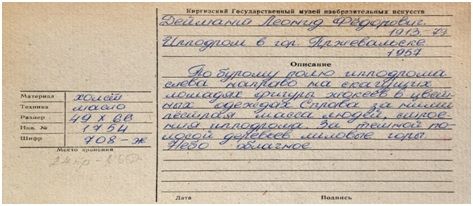 Киргизский Государственный музей изобразительных искусств
Дейманд Леонид Фёдорович.
1913-73
Ипподром в гор. Пржевальске
1957
Описание
По бурому полю ипподрома
слева направо на скачущих
лошадях фигуры жокеев в цвет-
ных одеждах Справа за ними
пестрая масса людей, строе-
ния ипподрома За темной по-
лосой деревьев лиловые горы
Небо облачное
Материал холст
Техника масло
Размер 49 х 68
Инв. № 1754
Шифр 708-ж
Место хранения
Дата Подпись